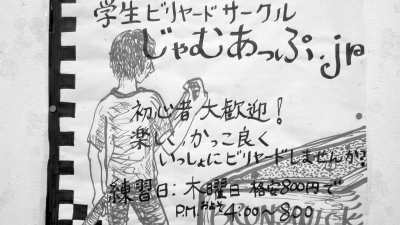 学生ビリヤードサークル
じゃむあっぷ.jp
初心者大歓迎!
楽しく,かっこ良く
いっしょにビリヤードしませんか?
練習日:木曜日 格安800円で
P.M.およそ4:00~8:00
BRUNSWICK